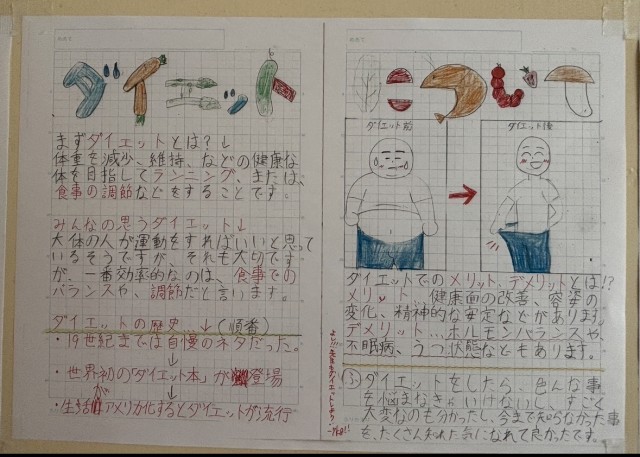 ダイエット
まずダイエットとは？↓
体重を減少、維持、などの健康な
体を目指してランニング、または、
食事の調節などをすることです。
みんなの思うダイエット↓
大体の人が運動をすればいいと思って
いるそうですが、それも大切です
が、一番効率的なのは、食事での
バランスや、調節だと言います。
ダイエットの歴史…↓(順番)
・19世紀までは自慢のネタだった。
↓
・世界初の「ダイエット本」が登場
↓
・生活がアメリカ化するとダイエットが流行
ダイエット前
ダイエット後
ダイエットでのメリット、デメリットとは!?
メリット…健康面の改善、容姿の
変化、精神的な安定などがあります。
デメリット…ホルモンバランスや、
不眠病、うつ状態などもあります。
ふ ダイエットをしたら、色んな事
を悩まなきゃいけないし、すごく
大変なのも分かったし、今まで知らなかった事
を、たくさん知れた気になれて良かったです。